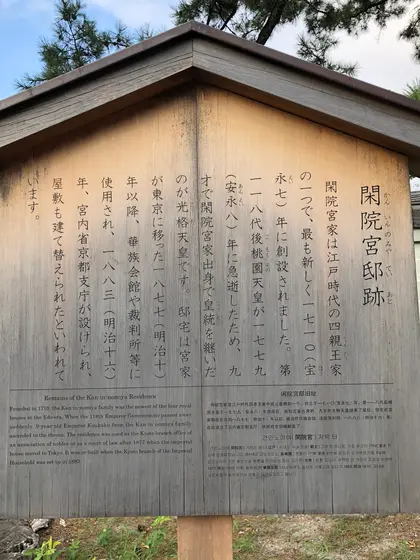 閑院宮邸跡
閑院宮家は江戸時代の四親王家
の一つで、最も新しく一七一〇(宝
永七)年に創設されました。第
一一八代後桃園天皇が一七七九
(安永八)年に急逝したため、九
才で閑院宮家出身で皇統を継いだ
のが光格天皇です。邸宅は宮家
が東京に移った一八七七(明治十)
年以降、華族会館や裁判所等に
使用され、一八八三(明治十六)
年、宮内省京都支庁が設けられ、
屋敷も建て替えられたといわれて
います。
Remains of the Kan-in-nomiya Residence
Founded in 1710, the Kan-in-nomiya family was the newest of the four royal
houses in the Edo era. When the 118th Emperor Gomomozono passed away
suddenly, 9-year-old Emperor Koukaku from the Kan-in-nomiya family
ascended to the throne. The residence was used as the Kyoto branch office of
an association of nobles or as a court of law after 1877 when the imperial
house moved to Tokyo. It was re-built when the Kyoto branch of the Imperial
Household was set up in 1883.
閑院宮邸旧址